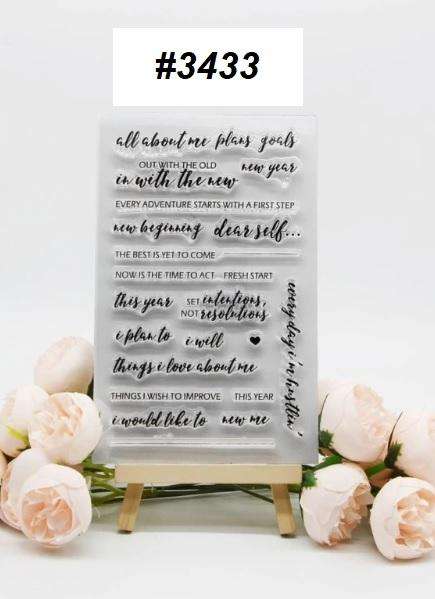 #3433
all about me plans goals
OUT WITH THE OLD new year
in with the new
EVERY ADVENTURE STARTS WITH A FIRST STEP
new beginning dear self...
THE BEST IS YET TO COME
NOW IS THE TIME TO ACT FRESH START
this year SET intentions,
NOT resolutions
i plan to i will
every day i'm hustlin'
things i love about me
THINGS I WISH TO IMPROVE THIS YEAR
i would like to new me